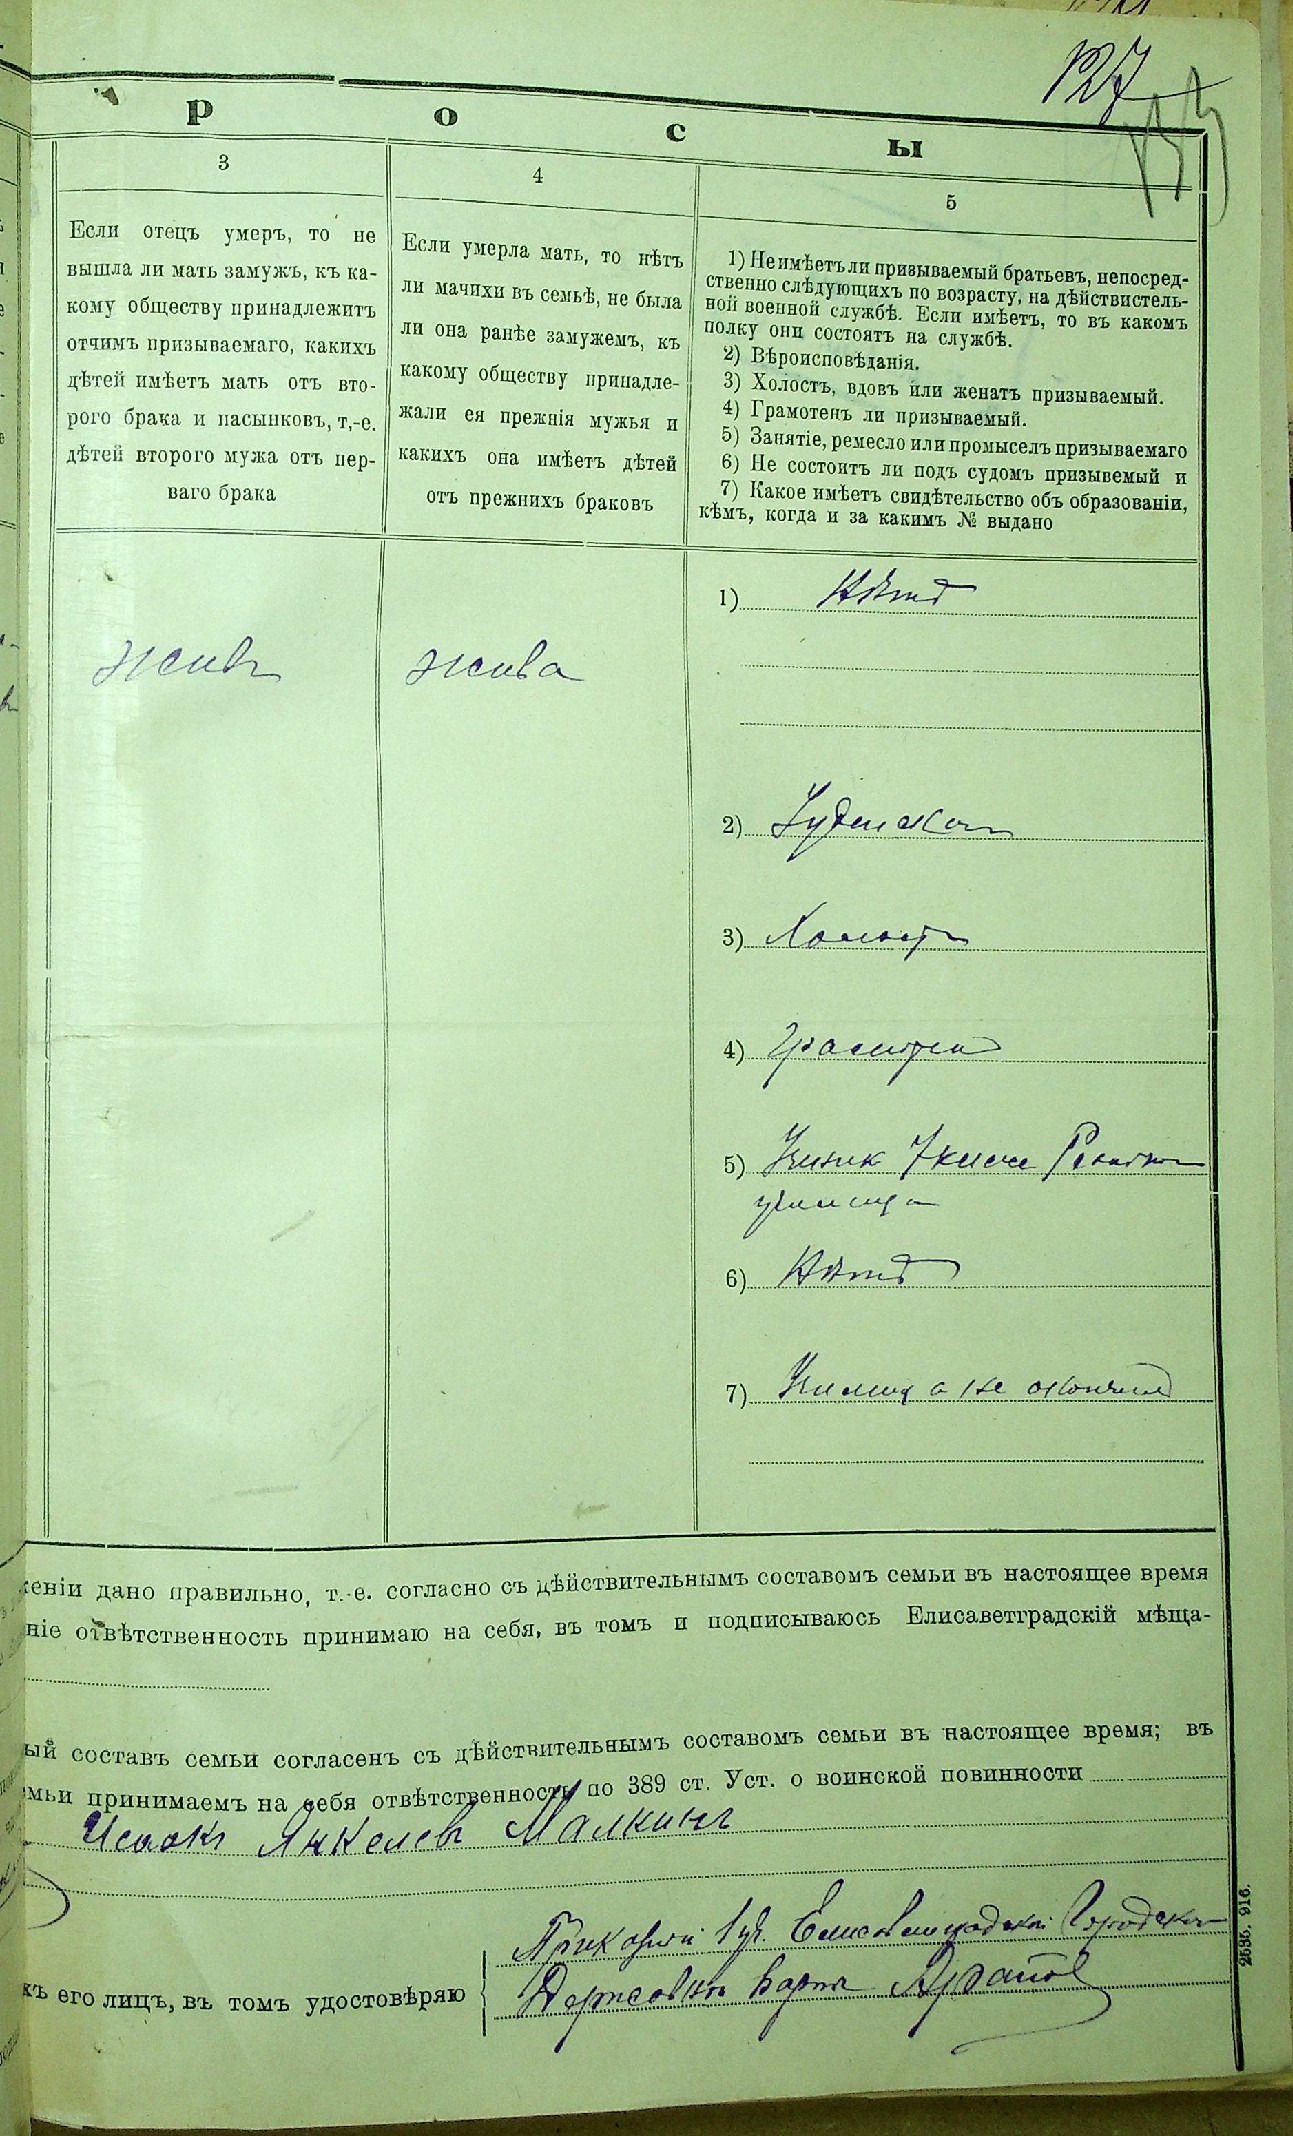 127
р о с ы
3
Если отецъ умеръ, то не
вышла ли мать замужъ, къ ка-
кому обществу принадлежитъ
отчимъ призываемаго, какихъ
дѣтей имѣетъ мать отъ вто-
рого брака и пасынковъ, т,-е.
дѣтей второго мужа отъ пер-
ваго брака
4
Если умерла мать, то нѣтъ
ли мачихи въ семьѣ, не была
ли она ранѣе замужемъ, къ
какому обществу принадле-
жали ея прежнія мужья и
какихъ она имѣетъ дѣтей
отъ прежнихъ браковъ
5
1) Не имѣетъ ли призываемый братьевъ, непосред-
ственно слѣдующихъ по возрасту, на дѣйствистель-
ной военной службѣ. Если имѣетъ, то въ какомъ
полку они состоятъ на службѣ.
2) Вѣроисповѣданія.
3) Холостъ, вдовъ или женатъ призываемый.
4) Грамотенъ ли призываемый.
5) Занятіе, ремесло или промыселъ призываемаго
6) Не состоитъ ли подъ судомъ призывемый и
7) Какое имѣетъ свидѣтельство объ образованіи,
кѣмъ, когда и за какимъ № выдано
живъ
жива
1) Нѣтъ
2) Іудейскаго
3) Холостъ
4) Грамотенъ
5) Ученик 7 класса Реальн
училища
6) Нѣтъ
7) Училища не окончилъ
женіи дано правильно, т.-е. согласно съ дѣйствительнымъ составомъ семьи въ настоящее время
ніе отвѣтственность принимаю на себя, въ томъ и подписываюсь Елисаветградскій мѣща-
ый составъ семьи согласенъ съ дѣйствительнымъ составомъ семьи въ настоящее время; въ
мьи принимаемъ на себя отвѣтственность по 389 ст. Уст. о воинской повинности
Исаакъ Янкелевъ Малкинъ
къ его лицъ, въ томъ удостовѣряю
Елисаветградской Городской
2595. 916.